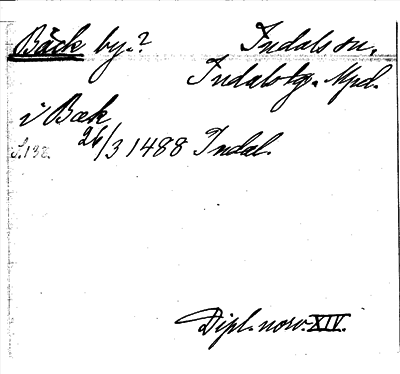 Bäck by.? Indals sn,
Indalstg. Mpd.
i Bæk
S.132. 26/3 1488 Indal.
Dipl. norv. XIV.